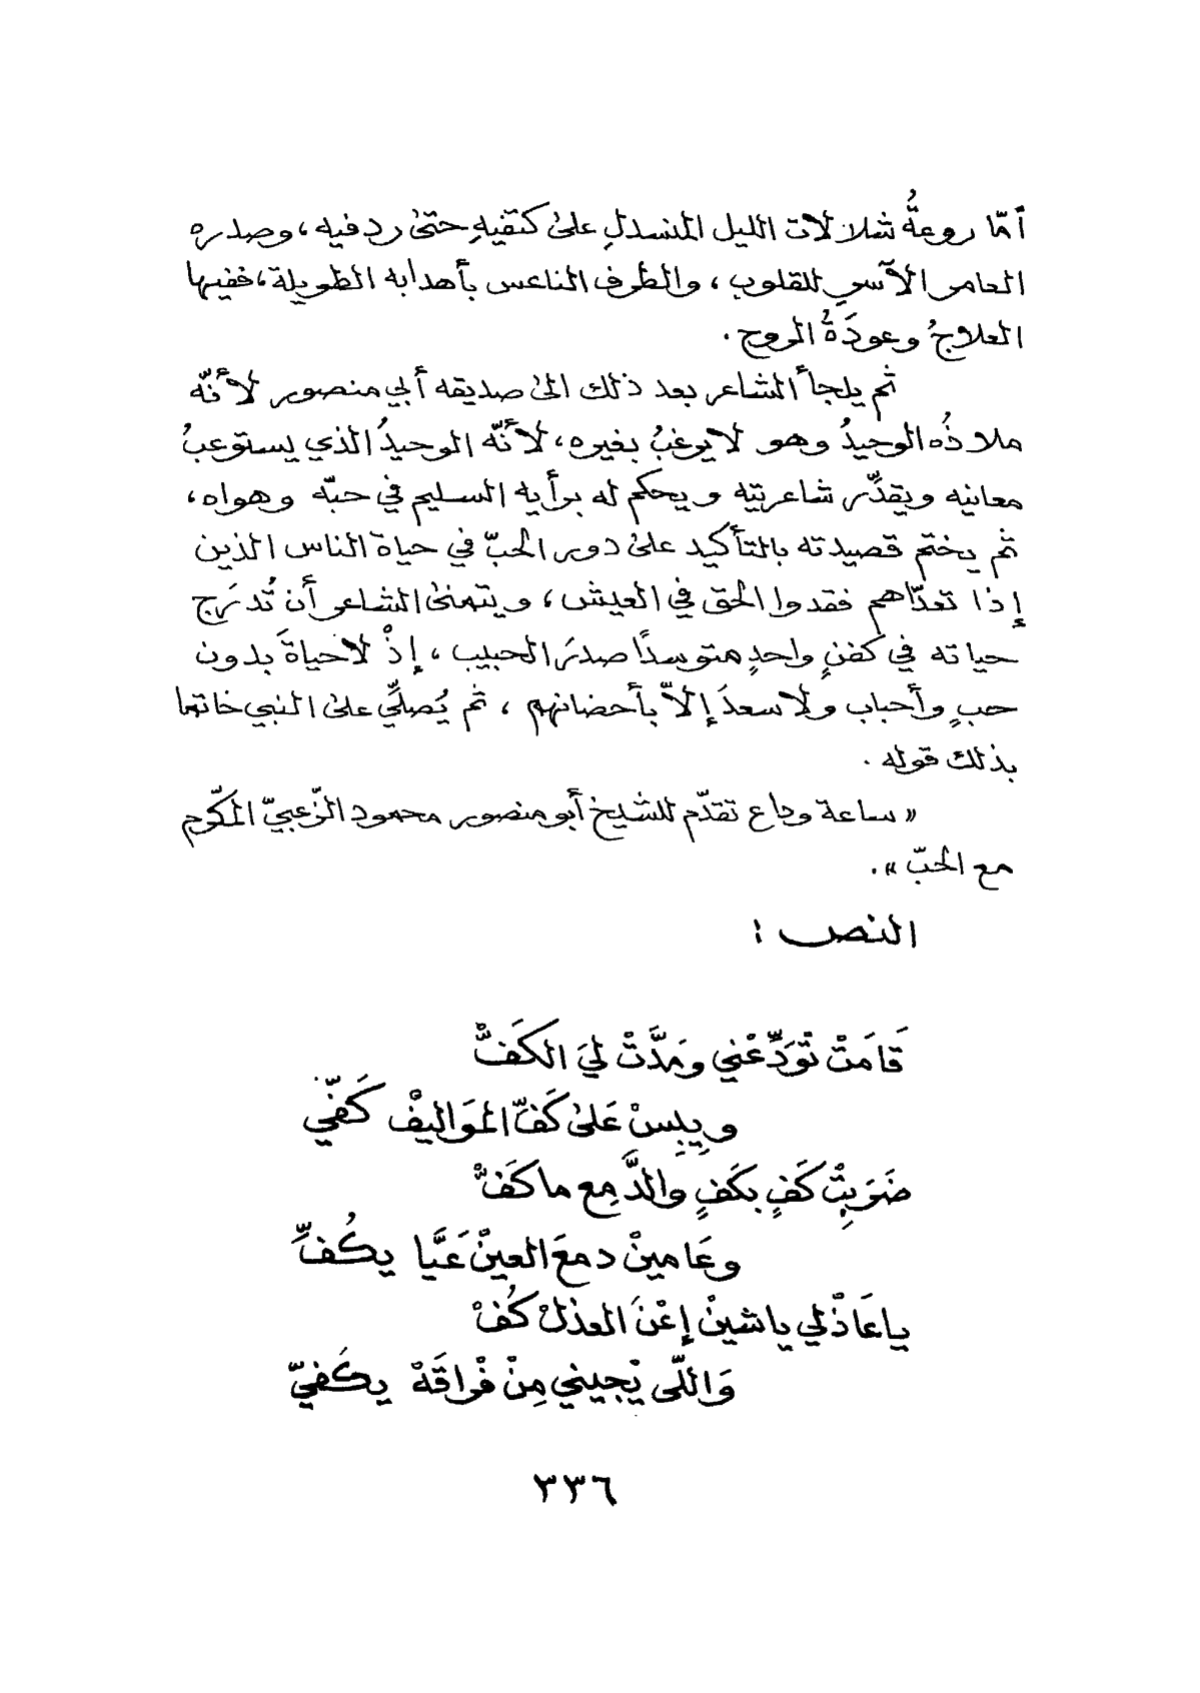 أمّا روعةُ شلالات الليل المنسدلِ على كتفيهِ حتى ردفيه ، وصدره
العامر الآسي للقلوب ، والطرف الناعس بأهدابه الطويلة ، ففيها
العلاجُ وعودَةُ الروح .
ثم يلجأ الشاعر بعد ذلك الى صديقه أبي منصور لأنّه
ملاذُه الوحيدُ وهو لا يرغبُ بغيره ، لأنّه الوحيدُ الذي يستوعبُ
معانيه ويقدِّر شاعريته ويحكم له برأيه السليم في حبّه وهواه ،
ثم يختم قصيدته بالتأكيد على دور الحبّ في حياة الناس الذين
إذا تعدّاهم فقدوا الحق في العيش ، ويتمنى الشاعر أن تُدرَج
حياته في كفنٍ واحدٍ متوسدًا صدرَ الحبيب ، إذْ لا حياةَ بدون
حبٍ وأحباب ولا سعدَ إلاّ بأحضانهم ، ثم يُصلّي على النبي خاتما
بذلك قوله .
« ساعة وداع تقدّم للشيخ أبو منصور محمود الزّعبيّ المكّرم
مع الحبّ » .
النص :
قَامَتْ تْوَدِّعْني ومَدَّتْ ليَ الكَفْ
ويِبِسْ عَلى كَفّ المْوَاليفْ كَفّي
ضَرَبِتْ كَفٍ بكَفٍ والدَّمِع ما كَفْ
وعَامينْ دمعَ العينْ عَيَّا يكُفِّ
يا عَاذْلي يا شينْ إعْنَ العذلْ كُفْ
وَاللّى يْجيني مِنْ فْراقَهْ يكَفيّ
٣٣٦